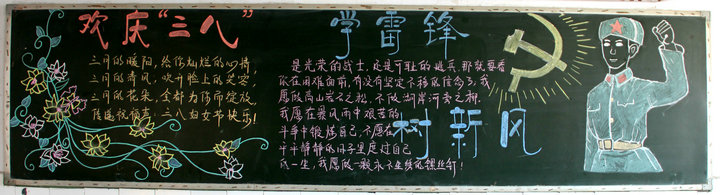 欢庆“三八”
三月的暖阳,给你灿烂的心情,
三月的清风,吹开脸上的笑容,
三月的花朵,全都为你而绽放,
段送祝福声:三八妇女节快乐!
学雷锋
是光荣的战士,还是可耻的逃兵,那就要看
你在困难面前,有没有坚定不移的信念了,我
愿做高山岩石之松,不做湖岸河旁之柳.
我愿在暴风雨中艰苦的
斗争中锻炼自己,不愿在
平平静静的日子里度过自己
的一生,我愿做一颗永不生锈的螺丝钉!
树新风